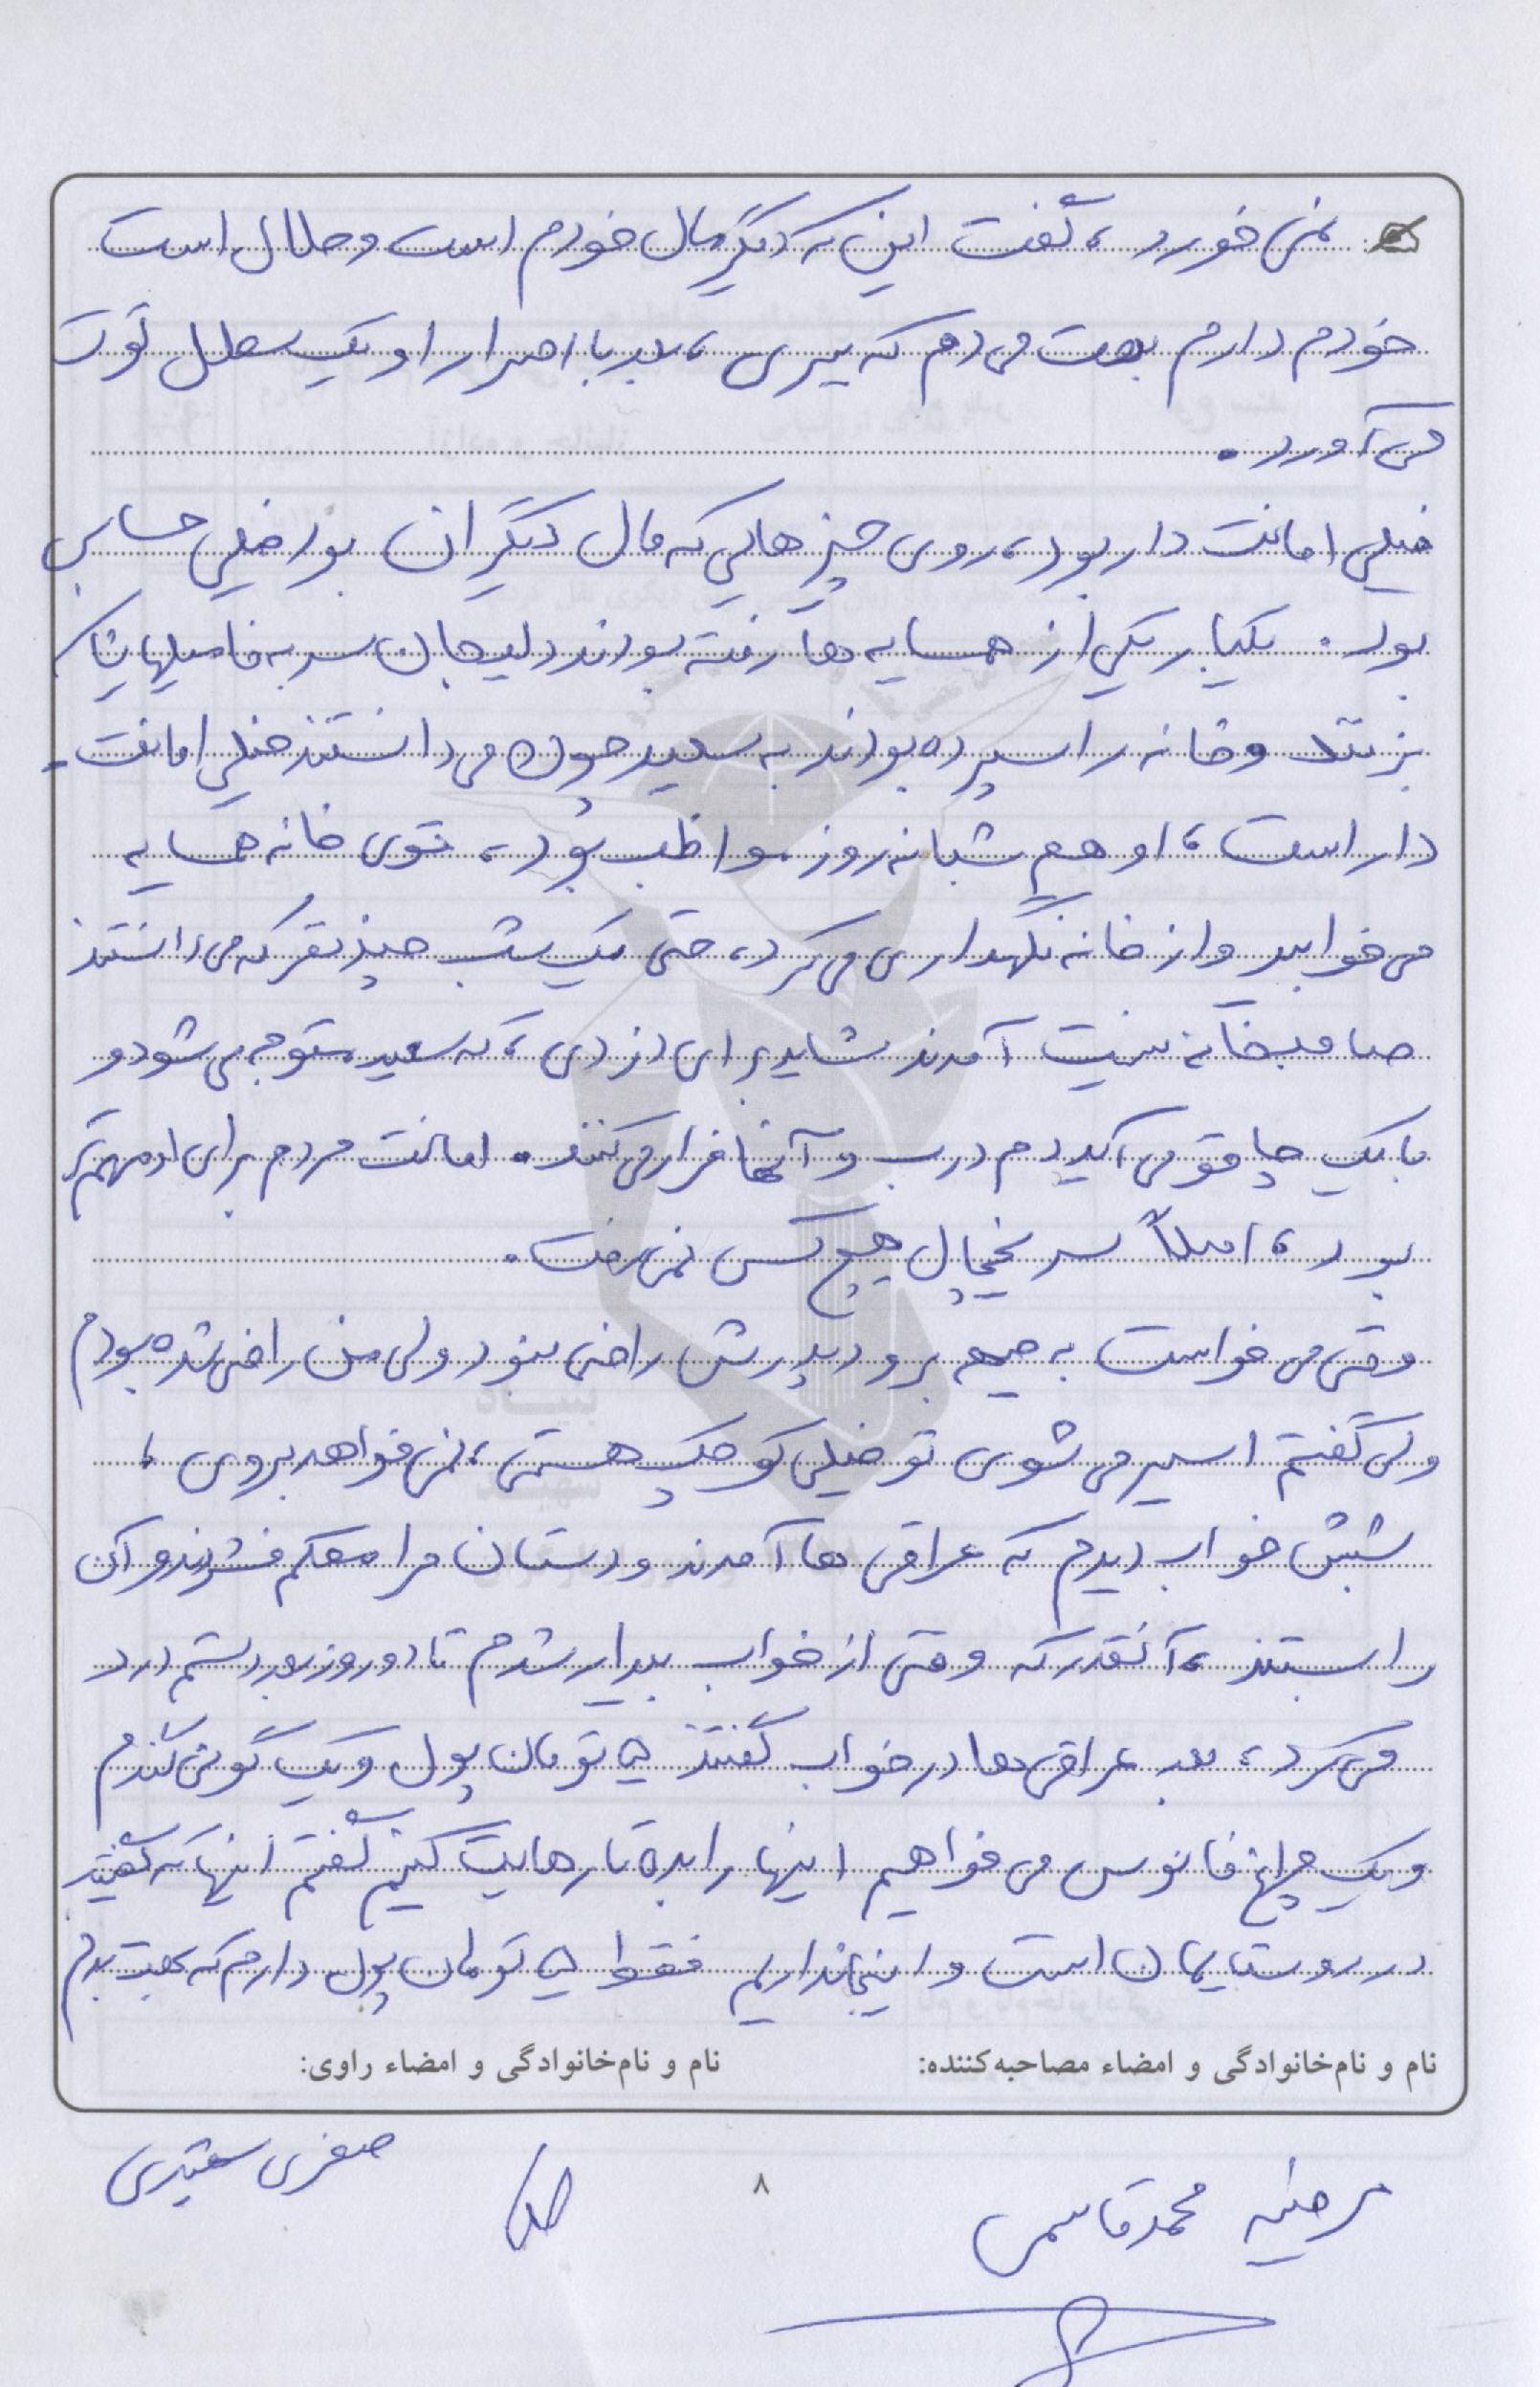 نمی خورد، گفت این که دیگر مال خودم است و حلال است
خودم دارم بهت می دم که ببری، بعد با اصرار او یک سطل توت
می آورد.
خیلی امانت دار بود، روی چیزهایی که مال دیگران بود خیلی حساس
بود. یکبار یکی از همسایه ها رفته بودند دلیجان سر به فامیلهایشان
بزنند و خانه را سپرده بودند به سعید چون می دانستند خیلی امانت
دار است، او هم شبانه روز مواظب بود، توی خانه همسایه
می خوابید و از خانه نگهداری می کرد، حتی یک شب چند نفر که می دانستند
صاحبخانه نیست آمدند شاید برای دزدی، که سعید متوجه می شود و
با یک چاقو می آید دم درب و آنها فرار می کنند. امانت مردم برای او مهم تر
بود، اصلاً سر یخچال هیچ کس نمی رفت.
وقتی می خواست به جبهه برود پدرش راضی نبود ولی من راضی شده بودم
ولی گفتم اسیر می شوی تو خیلی کوچک هستی، نمی خواهد بروی،
شبش خواب دیدم که عراقی ها آمدند و دستان مرا محکم فشردند و آن
را بستند، آنقدر که وقتی از خواب بیدار شدم تا دو روز بعد دستم درد
می کرد، بعد عراقی ها در خواب گفتند ۵ تومان پول و یک گونی گندم
و یک چراغ فانوس می خواهیم اینها را بده تا رهایت کنیم گفتم اینها که گفتید
در روستایمان است و اینجا نداریم فقط ۵ تومان پول دارم که بهت بدم
نام و نام‌خانوادگی و امضاء مصاحبه‌کننده: نام و نام‌خانوادگی و امضاء راوی:
مرضیه محمدقاسمی
۸
صغری سعیدی